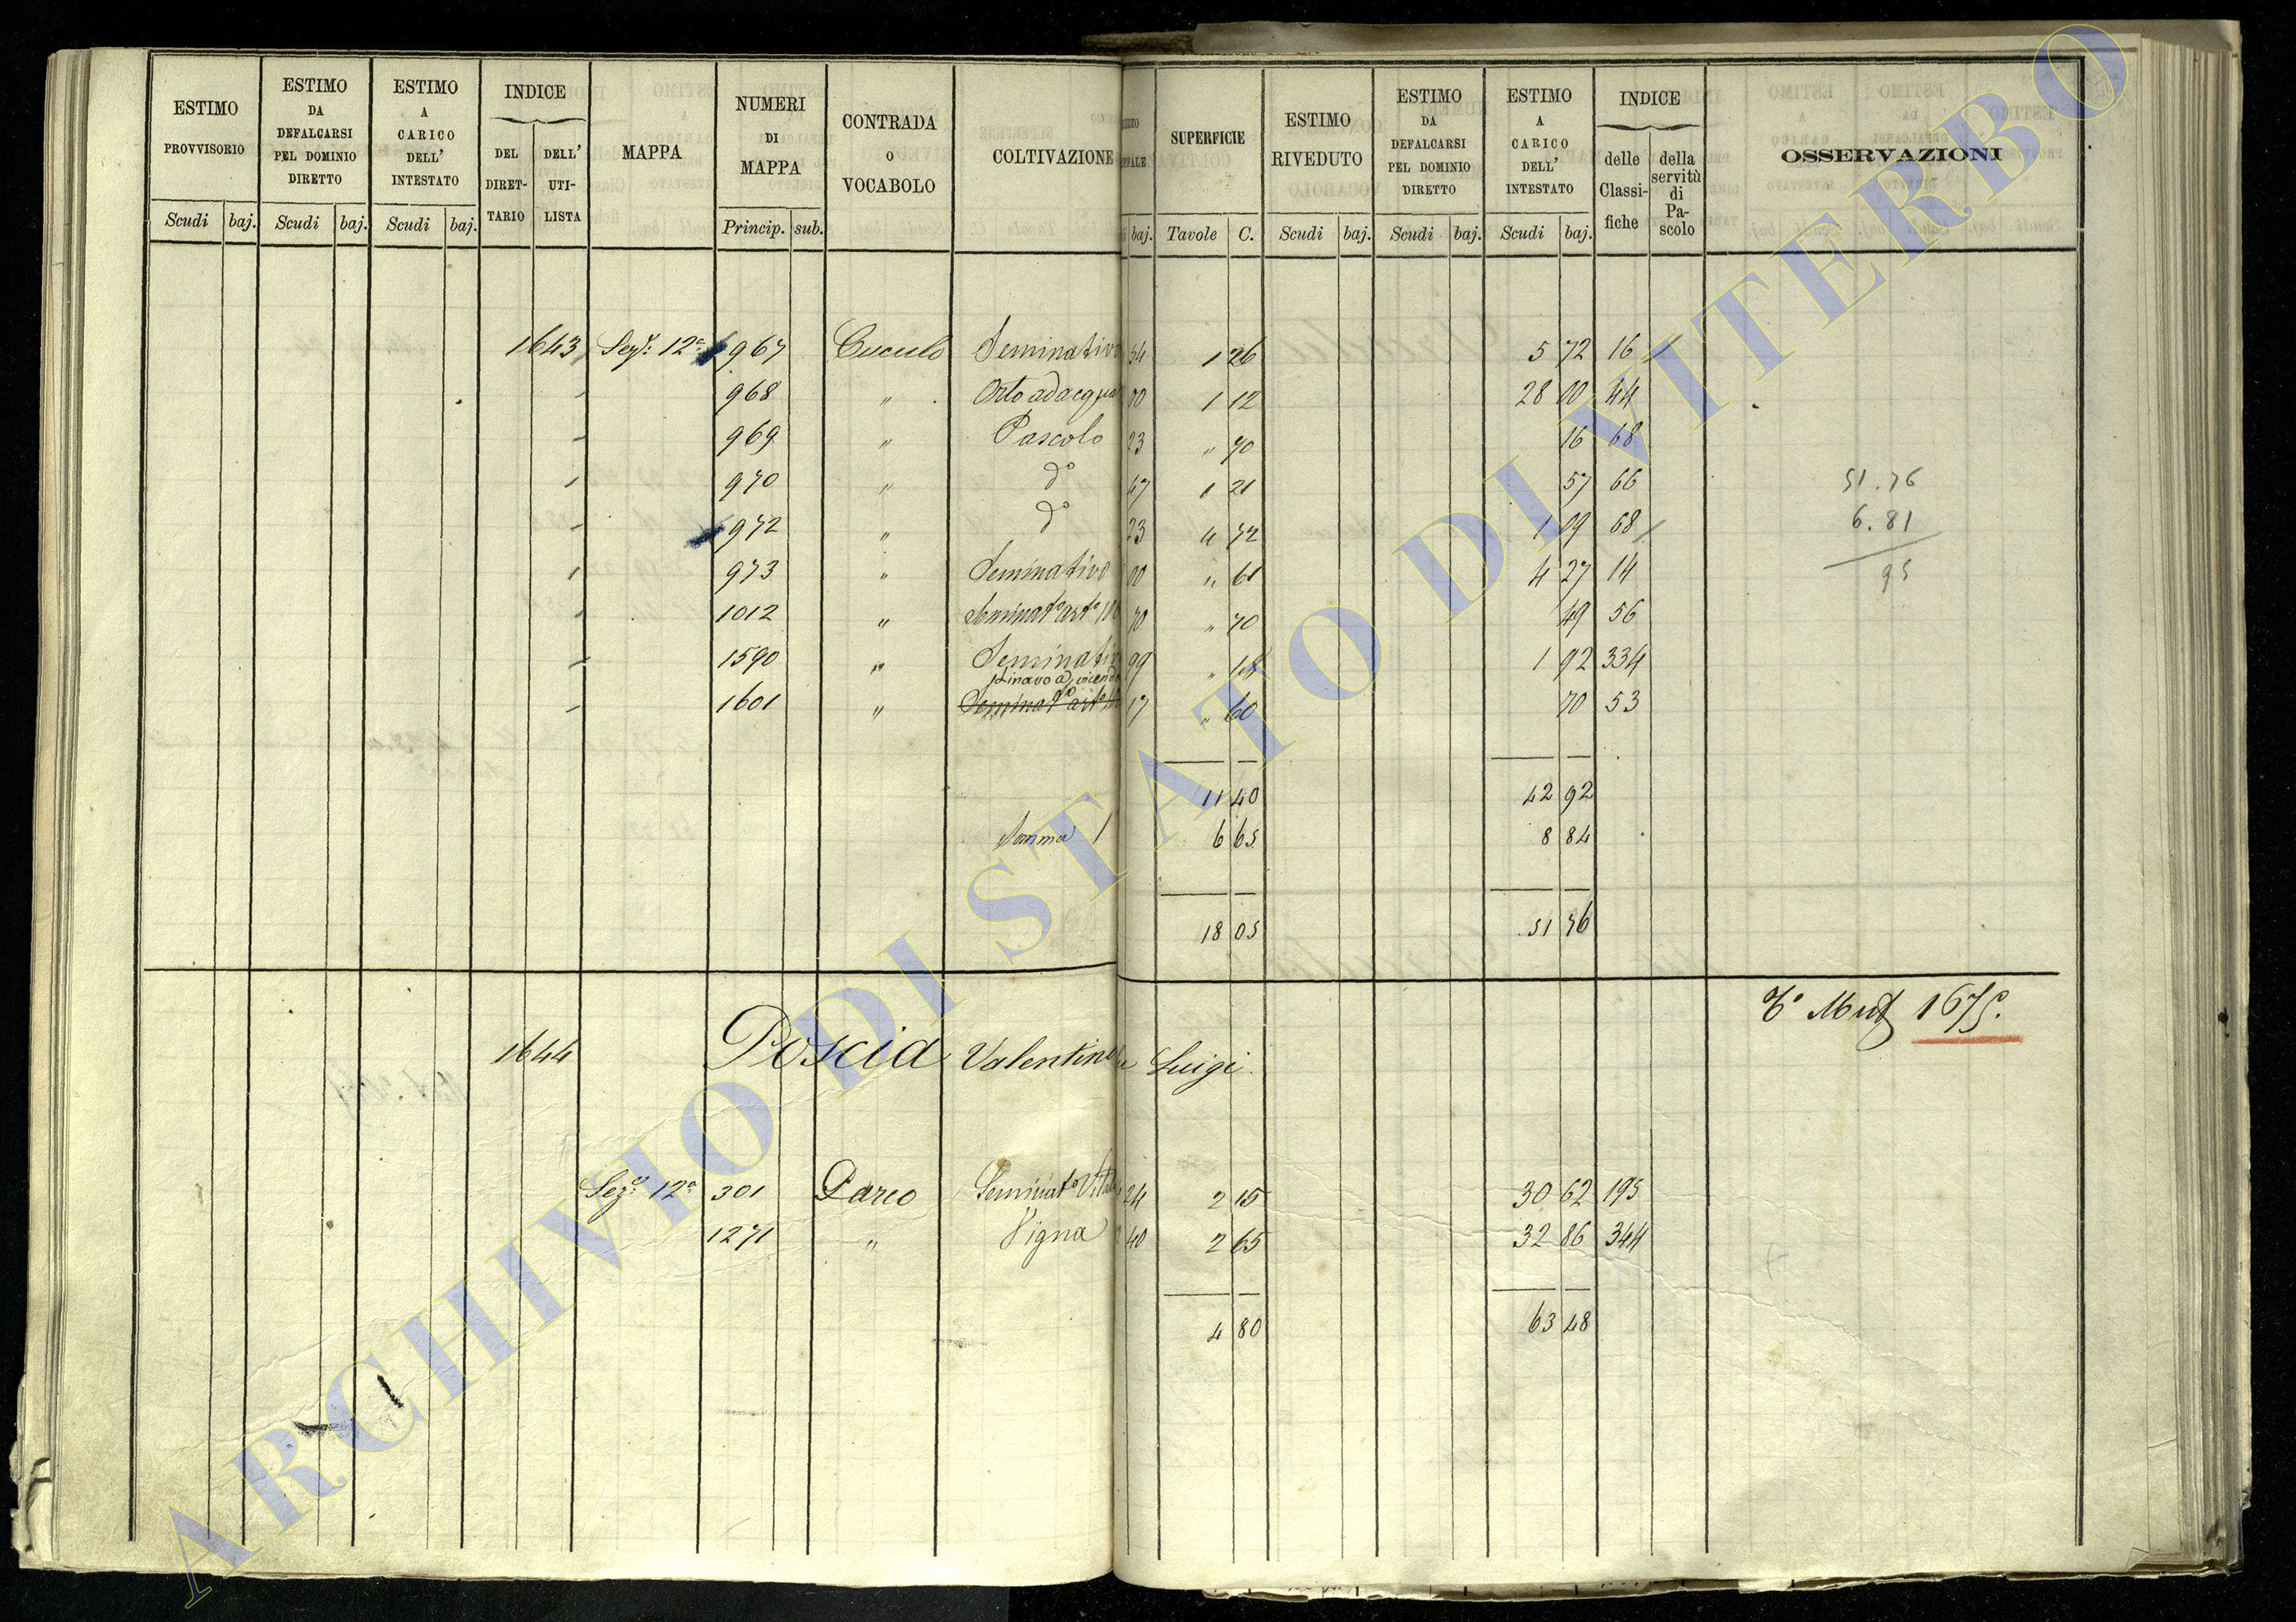 ESTIMO PROVVISORIO | ESTIMO DA DEFALCARSI PEL DOMINIO DIRETTO | ESTIMO A CARICO DELL' INTESTATO | INDICE DEL DIRET-TARIO | DELL' UTI-LISTA | MAPPA | NUMERI DI MAPPA | CONTRADA O VOCABOLO | COLTIVAZIONE | SUPERFICIE | ESTIMO RIVEDUTO | ESTIMO DA DEFALCARSI PEL DOMINIO DIRETTO | ESTIMO A CARICO DELL' INTESTATO | INDICE delle Classi-fiche | della servitù di Pa-scolo | OSSERVAZIONI
Scudi baj. Scudi baj. Scudi baj. Princip. sub. baj. Tavole C. Scudi baj. Scudi baj. Scudi baj.
1643 Sez.e 12a 967 Cuculo Seminativo 54 1 26 5 72 16
968 " Orto adacqua 00 1 12 28 00 44
969 " Pascolo 23 " 70 16 68
970 " do 47 1 21 57 66
51.76
972 " do 23 4 72 1 09 68
6.81
973 " Seminativo 00 " 61 4 27 14
95
1012 " Seminato art 70 " 70 49 56
1590 " Seminativ 99 " 18 1 92 334
1601 " 17 " 60 70 53
11 40 42 92
Somma 6 65 8 84
18 05 51 76
To Mut 1675.
1644 Poscia Valentino Luigi
Sez.e 12a 301 Parco Seminato Vitato 24 2 15 30 62 195
1271 " Vigna 40 2 65 32 86 344
4 80 63 48
ARCHIVIO DI STATO DI VITERBO